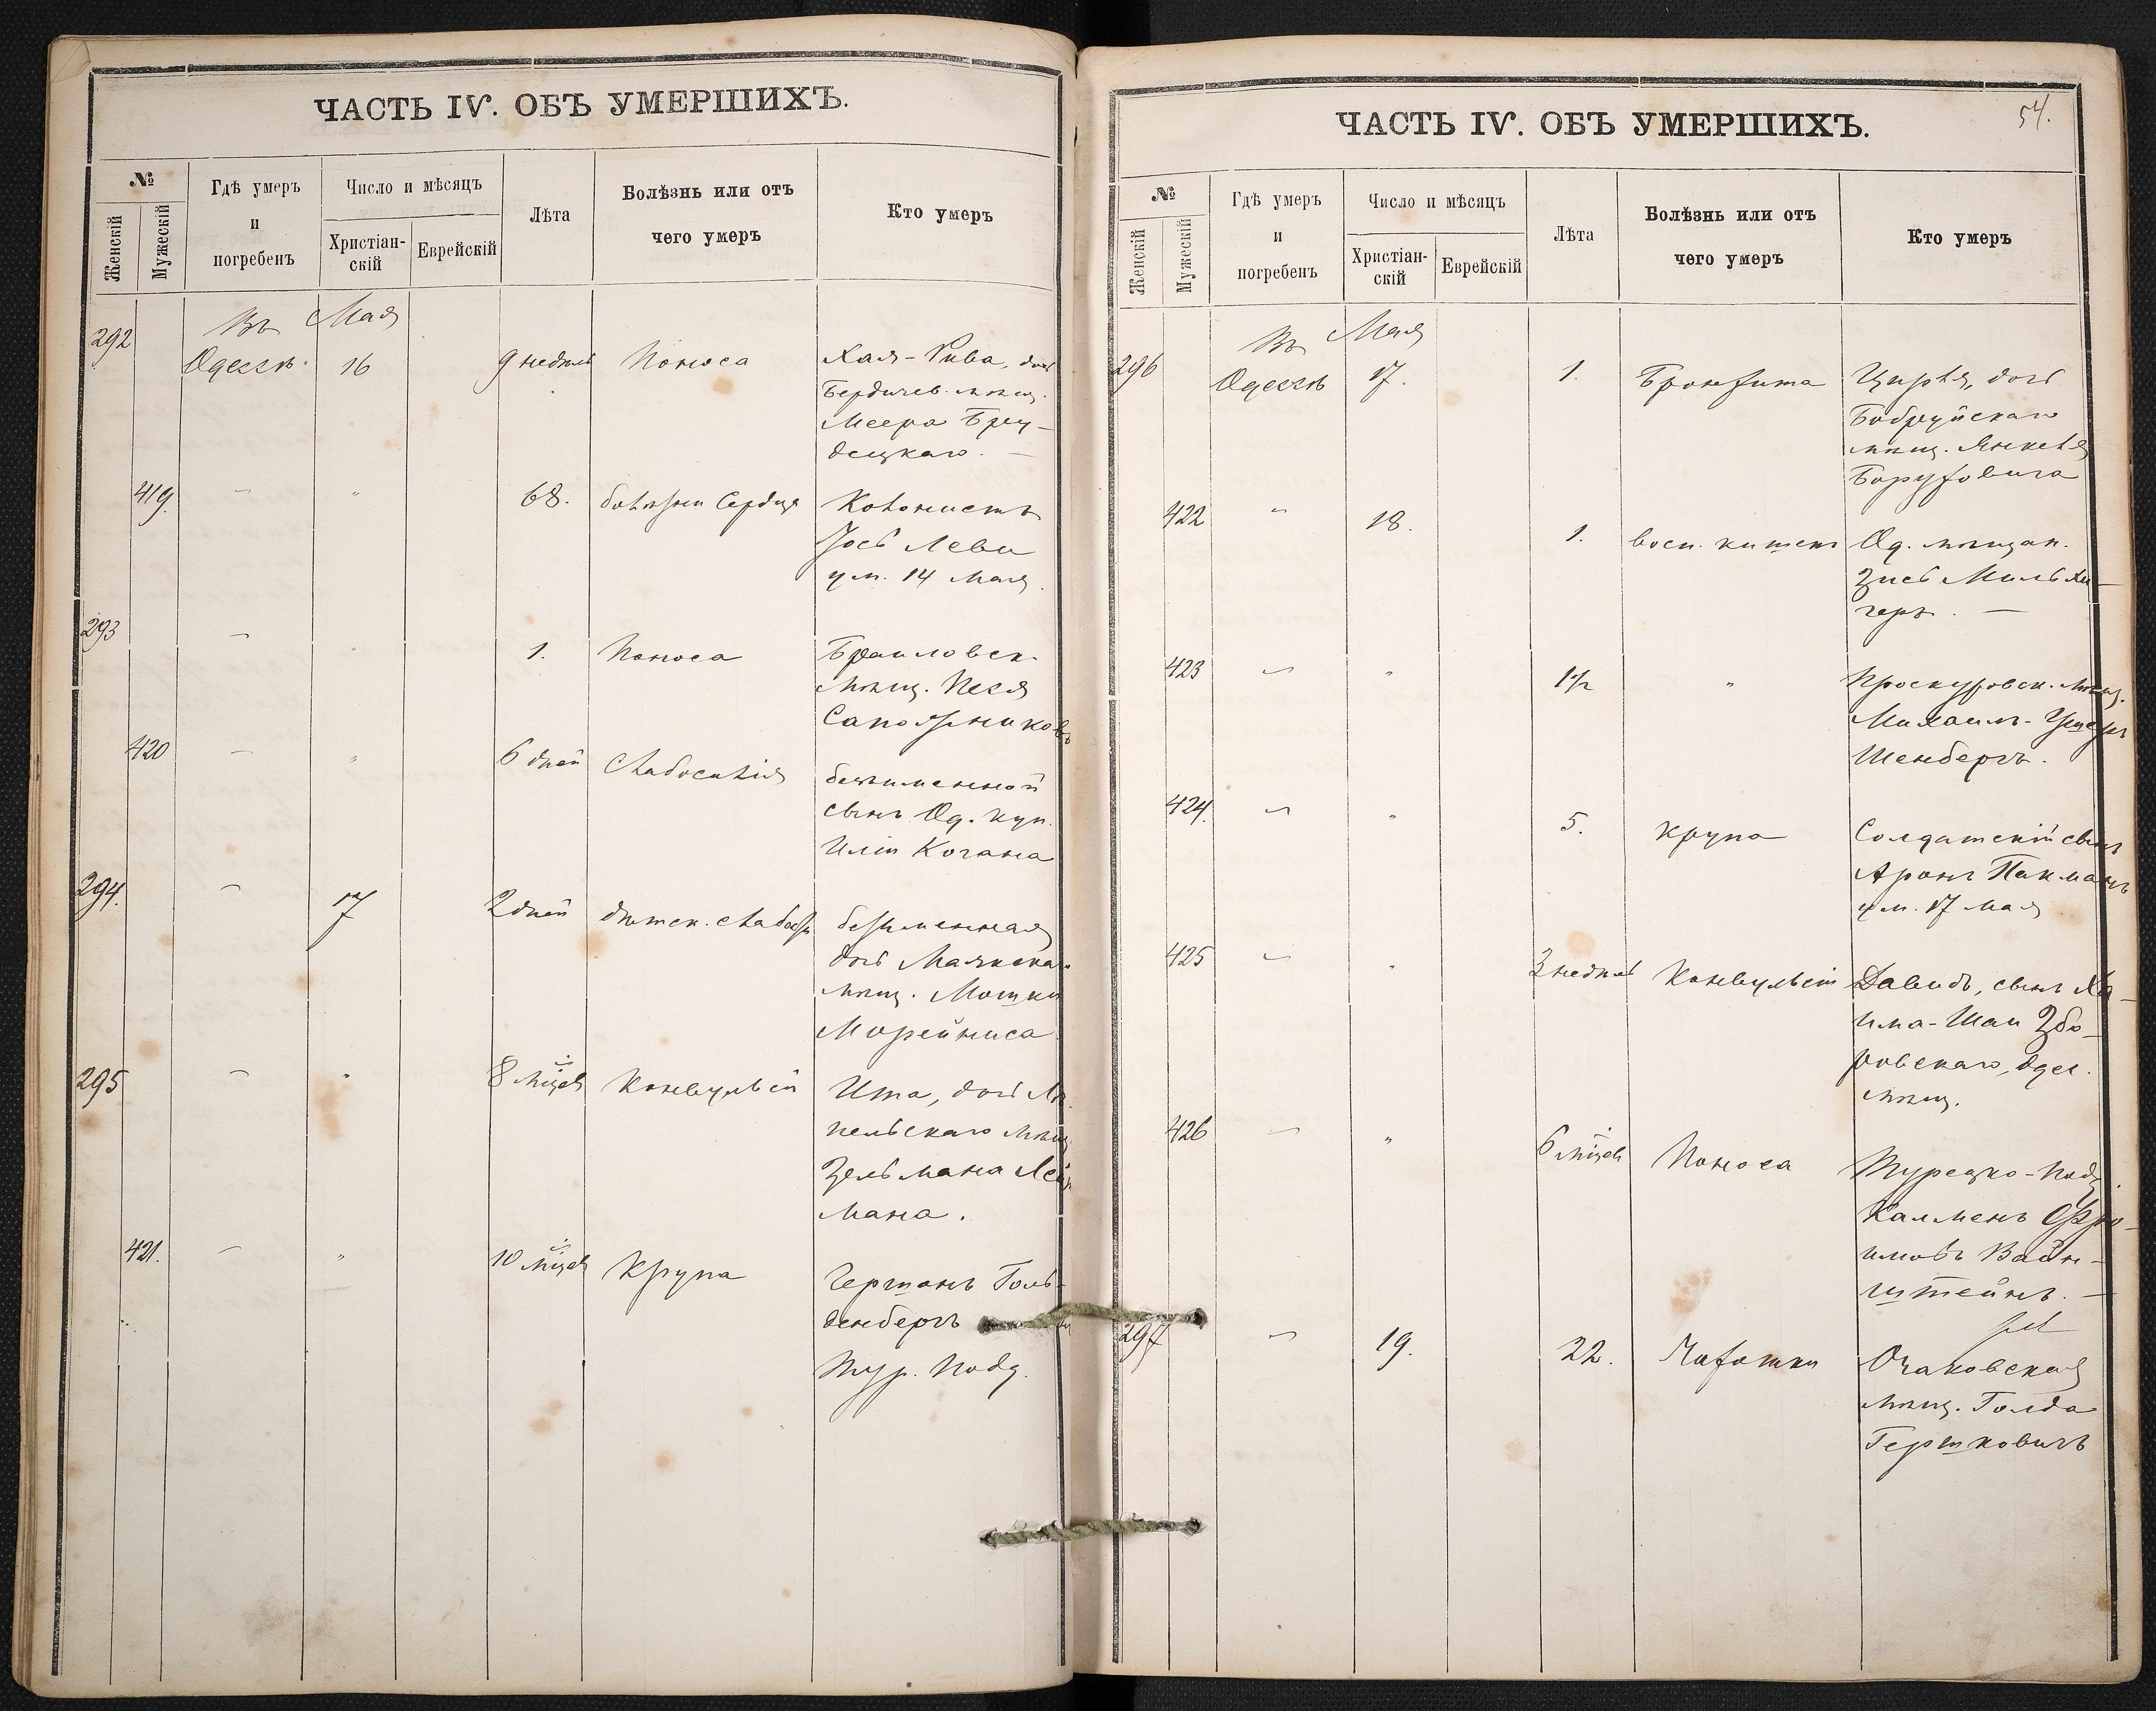 ЧАСТЬ IV. ОБЪ УМЕРШИХЪ.
№
Женскій
Мужескій
Гдѣ умеръ
и
погребенъ
Число и мѣсяцъ
Христіан-
скій
Еврейскій
Лѣта
Болѣзнь или отъ
чего умеръ
Кто умеръ
Въ Мая
292 Одессѣ 16 9 недѣль Поноса Хая-Рива, дочь
Бердичев. мѣщ.
Меера
децкаго. —
419. — " 68. болѣзни Сердца Колонистъ
Іось Леви
ум. 14 Мая.
293 — " 1. Поноса Браиловск.
мѣщ. Песя
Сапожникова
420 — " 6 дней Слабосилія безъименной
сынъ Од. куп.
Иліи Когана
294. — 17 2 дней дѣтск. слабость безименная
дочь Маякскаго
мѣщ. Мошки
Морейниса
295 — " 8 мѣсяцъ Конвульсій Ита, дочь
пельскаго мѣщ.
Зельмана Лей
мана.
421. — " 10 мѣсяц Крупа Гершонъ Голь-
денбергъ
Тур. Подд.
54.
ЧАСТЬ IV. ОБЪ УМЕРШИХЪ.
№
Женскій
Мужескій
Гдѣ умеръ
и
погребенъ
Число и мѣсяцъ
Христіан-
скій
Еврейскій
Лѣта
Болѣзнь или отъ
чего умеръ
Кто умеръ
Въ Мая
296 Одессѣ 17. 1. Бронхита Цирля, дочь
Бобруйскаго
мѣщ. Янкеля
Боруховича
422 " 18. 1. восп. кишекъ Од. мѣщан.
Зись Мильхи-
геръ. —
423 — " 1½ " Проскуровск. мѣщ.
Михаилъ-Ушеръ
Шенбергъ.
424. — " 5. Крупа Солдатскій сынъ
Аронъ Пакманъ
ум. 17 Мая
425 — " 3 недѣль Конвульсій Давидъ, сынъ Ха-
има-Шаи Збо-
ровскаго, Одес.
мѣщ.
426 — " 6 мѣсяц Поноса Турецко-Подд.
Калменъ Фро-
имовъ Вайн-
штейнъ. —
297 — 19. 22. Чахотки Очаковская
мѣщ. Голда
Гершковичъ